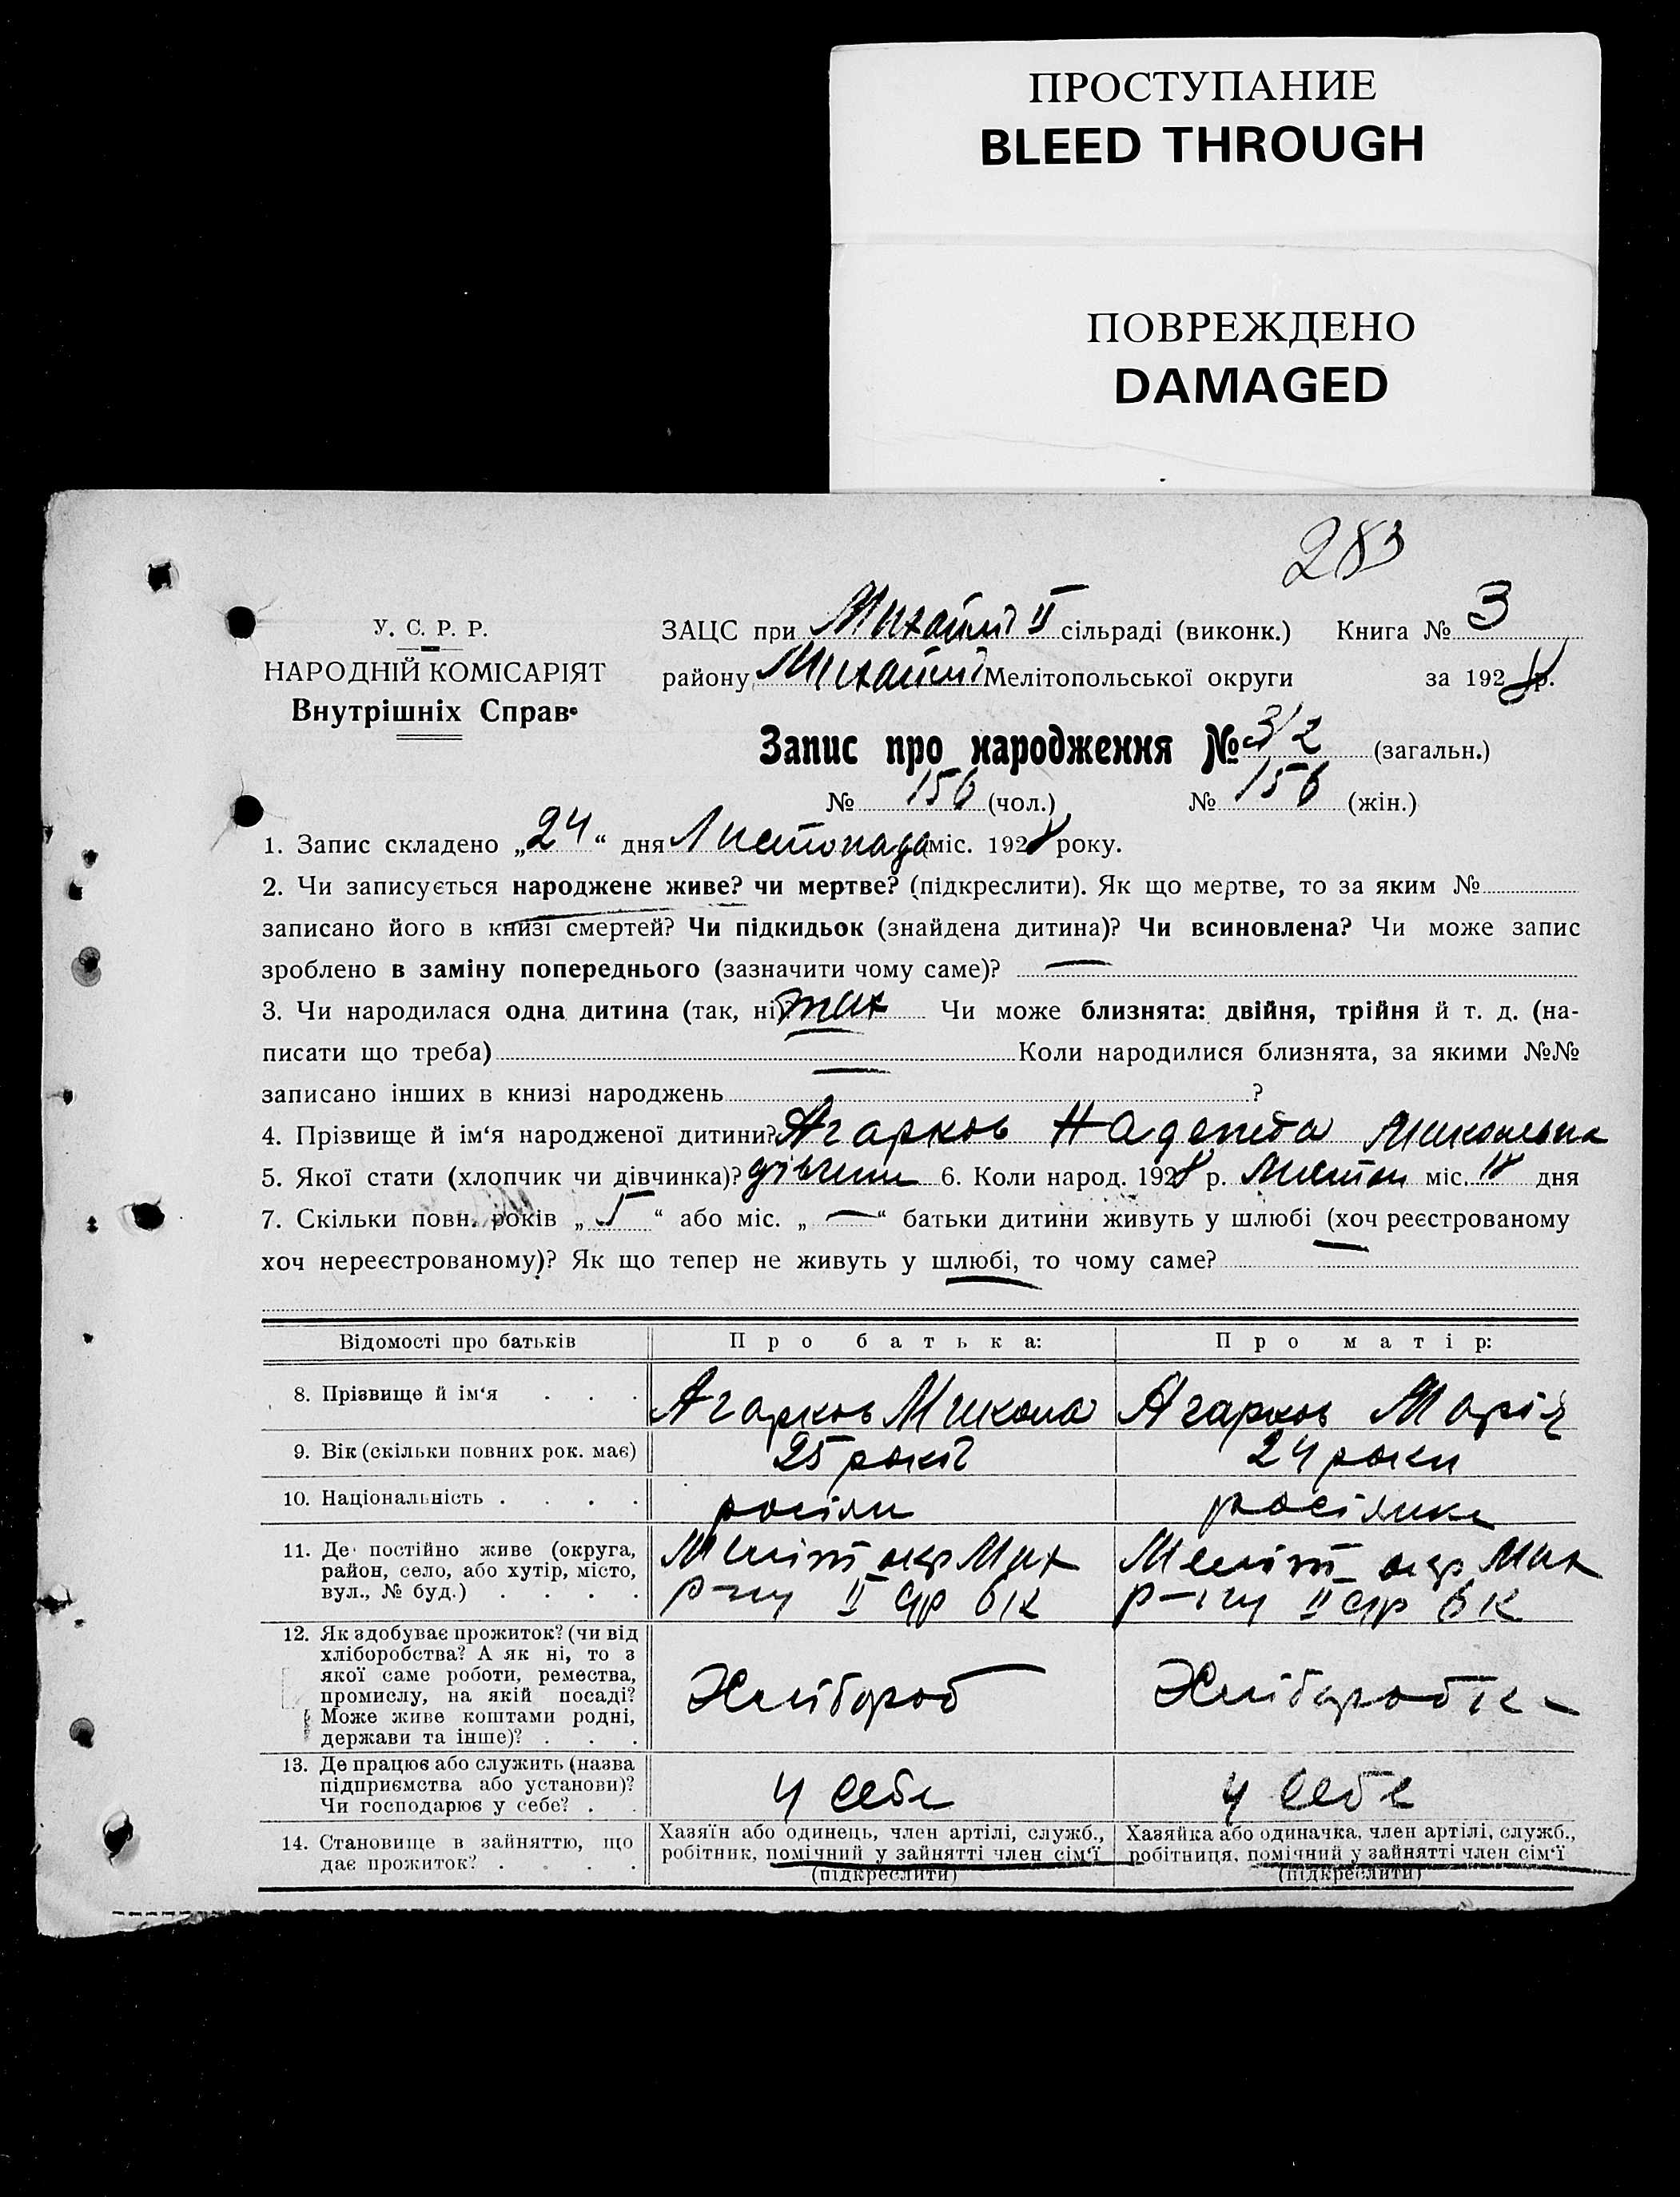 ПРОСТУПАНИЕ
BLEED THROUGH
ПОВРЕЖДЕНО
DAMAGED
283
У. С. Р. Р.
НАРОДНІЙ КОМІСАРІЯТ
Внутрішніх Справ
ЗАЦС при Михайлів ІІ сільраді (виконк.) Книга № 3
району Михайлів Мелітопольської округи за 1928 р.
Запис про народження № 312 (загальн.)
№ 156 (чол.) № 156 (жін.)
1. Запис складено „24“ дня Листопада міс. 1928 року.
2. Чи записується народжене живе? чи мертве? (підкреслити). Як що мертве, то за яким №
записано його в книзі смертей? Чи підкидьок (знайдена дитина)? Чи всиновлена? Чи може запис
зроблено в заміну попереднього (зазначити чому саме)? —
3. Чи народилася одна дитина (так, ні) так Чи може близнята: двійня, трійня й т. д. (на-
писати що треба) Коли народилися близнята, за якими №№
записано інших в книзі народжень ?
4. Прізвище й ім‘я народженої дитини? Агарков Надежда Микольевна
5. Якої стати (хлопчик чи дівчинка)? дівчин 6. Коли народ. 1928 р. Листоп міс. дня
7. Скільки повн. років „5“ або міс. „—“ батьки дитини живуть у шлюбі (хоч реєстрованому
хоч нереєстрованому)? Як що тепер не живуть у шлюбі, то чому саме?
Відомості про батьків Про батька: Про матір:
8. Прізвище й ім‘я . . . Агарков Микола Агарков Марія
9. Вік (скільки повних рок. має) 25 років 24 роки
10. Національність . . . . росіян росіянка
11. Де постійно живе (округа, район, село, або хутір, місто, вул., № буд.) . . . . Меліт окр Мих Меліт окр Мих
р-ну ІІ с/р р-ну ІІ с/р
12. Як здобуває прожиток? (чи від хліборобства? А як ні, то з якої саме роботи, ремества, промислу, на якій посаді? Може живе коштами родні, держави та інше)? . . . Хлібороб Хліборобка
13. Де працює або служить (назва підприємства або установи)? Чи господарює у себе? . . У себе У себе
14. Становище в зайняттю, що дає прожиток? . . . . Хазяїн або одинець, член артілі, служб., робітник, помічний у зайнятті член сім‘ї (підкреслити) Хазяйка або одиначка, член артілі, служб., робітниця, помічний у зайнятті член сім‘ї (підкреслити)